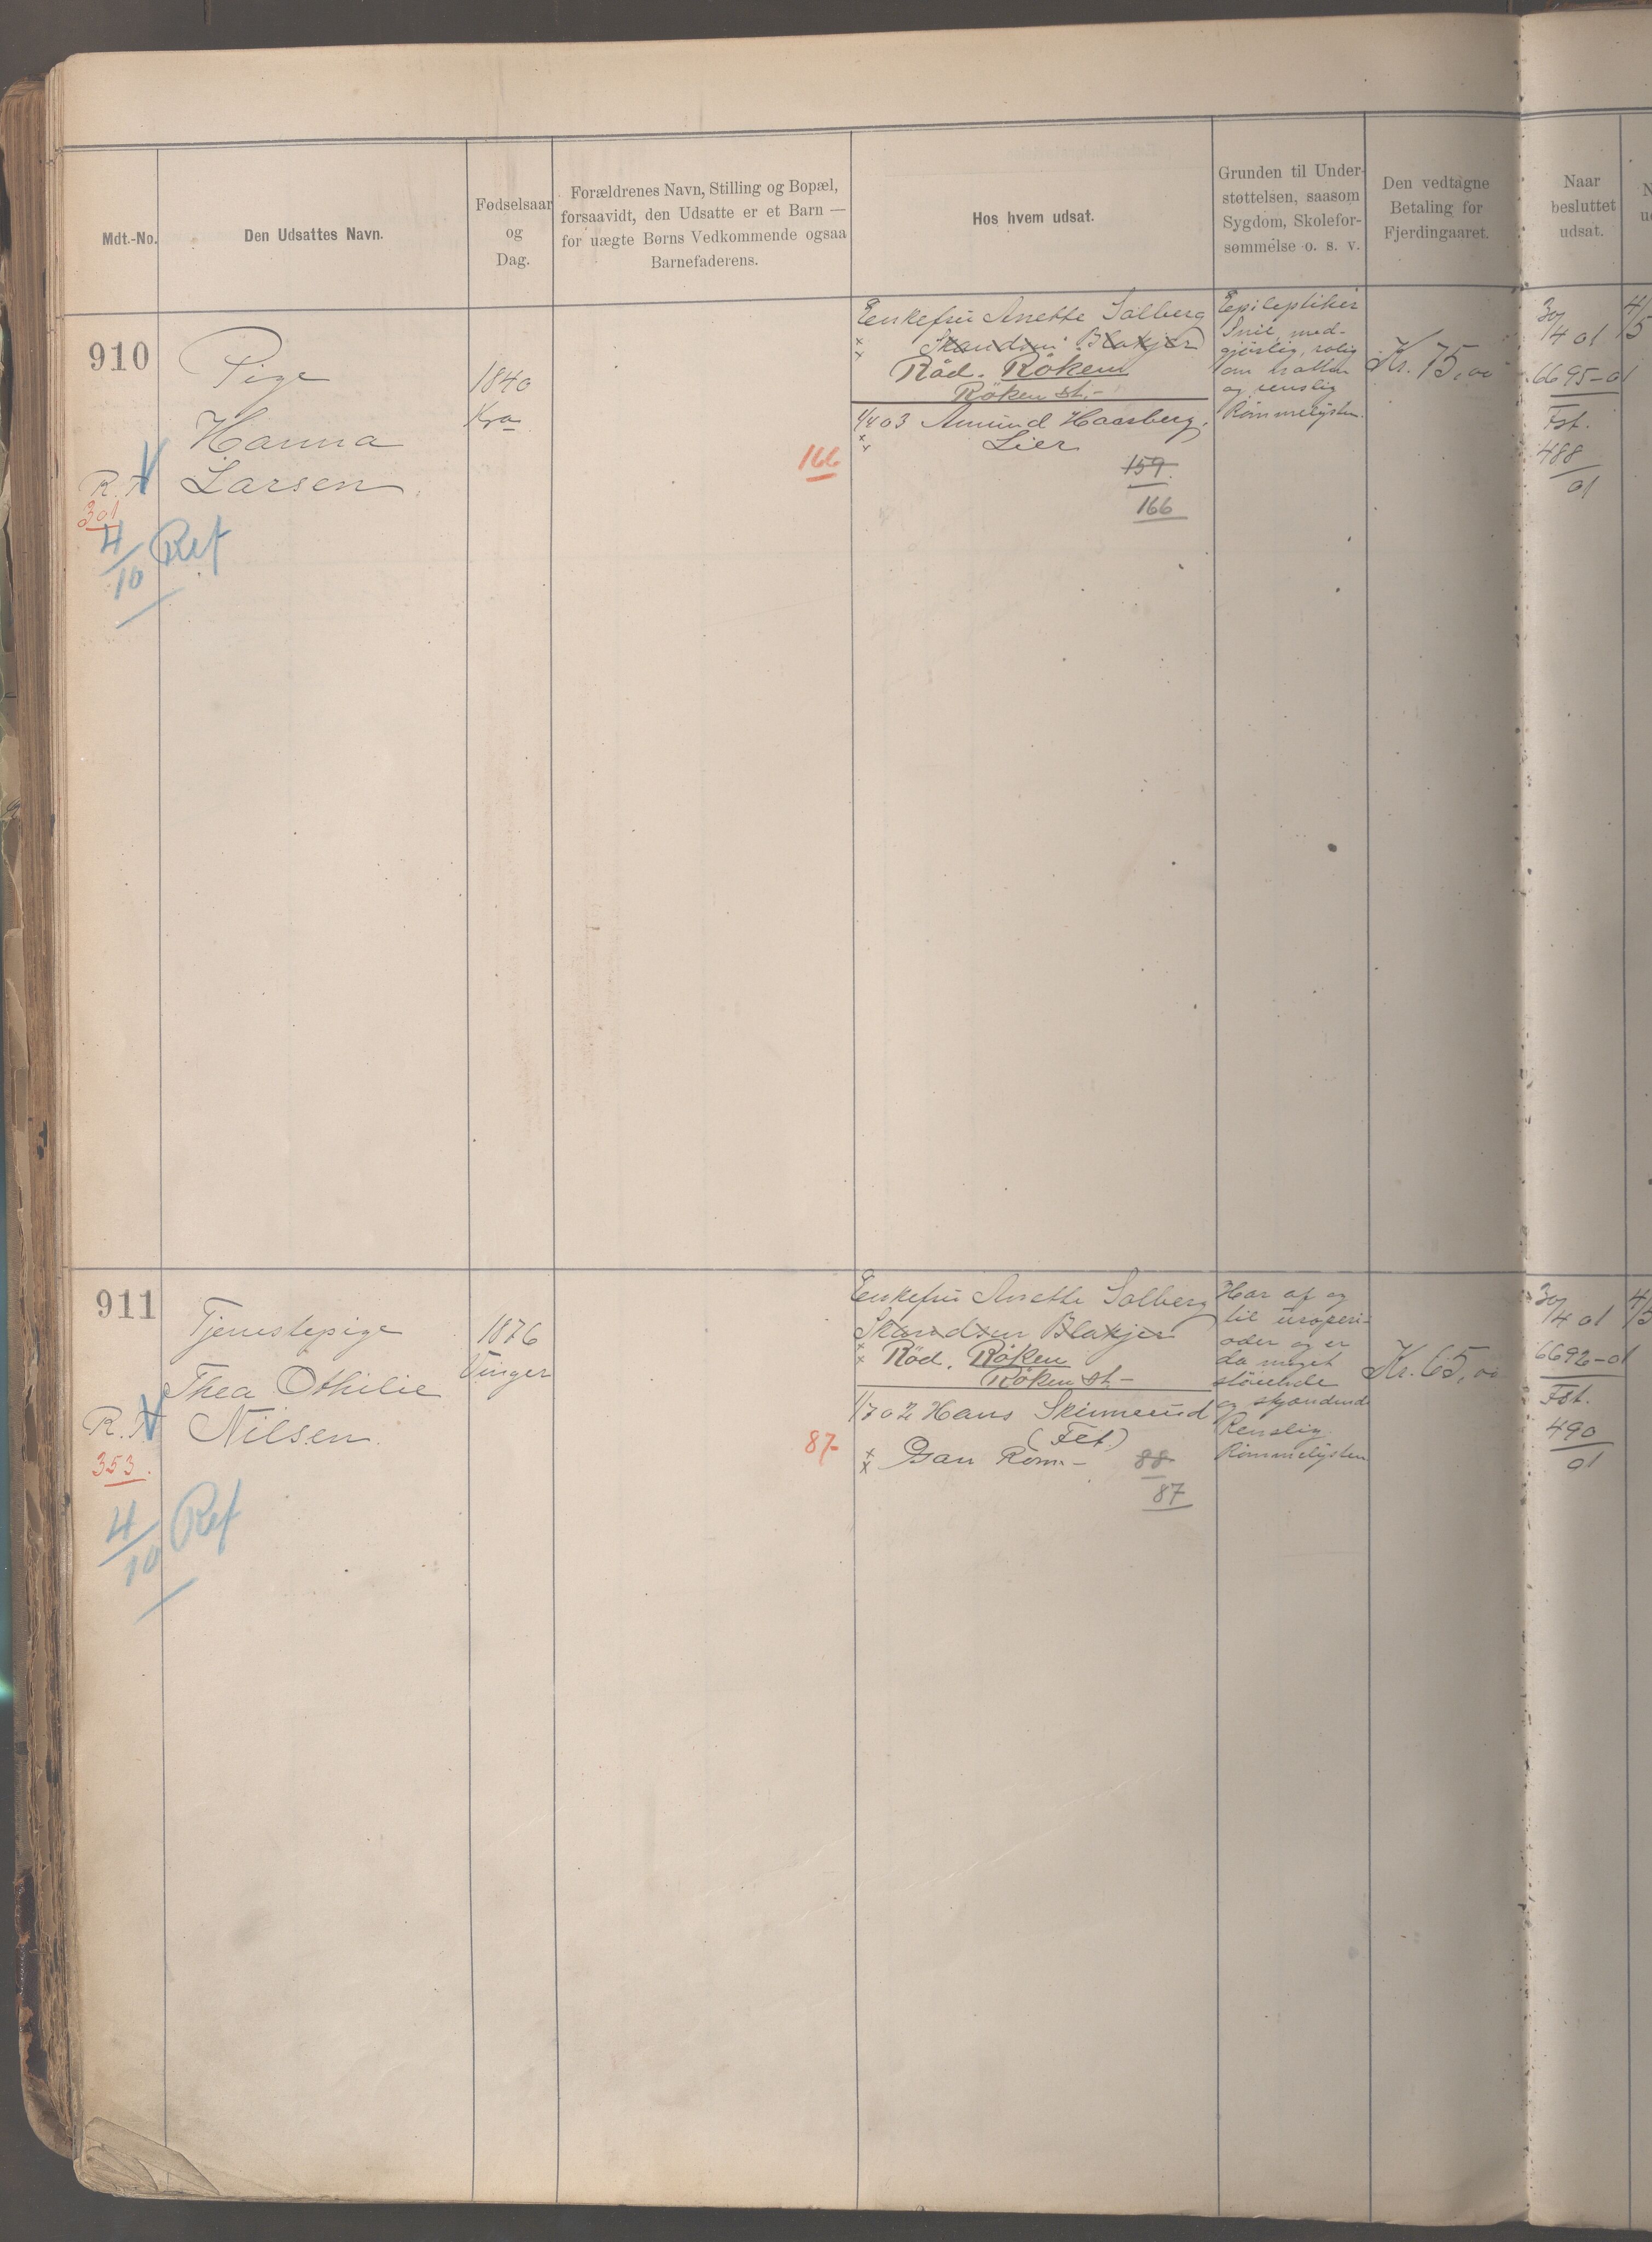 Mdt.-No.
Den Udsattes Navn.
Fødselsaar
og
Dag.
Forældrenes Navn, Stilling og Bopæl,
forsaavidt, den Udsatte er et Barn —
for uægte Børns Vedkommende ogsaa
Barnefaderens.
Hos hvem udsat.
Grunden til Under-
støttelsen, saasom
Sygdom, Skolefor-
sømmelse o. s. v.
Den vedtagne
Betaling for
Fjerdingaaret.
Naar
besluttet
udsat.
910
Pige
Hanna
Larsen
R. T
301
4/10 Ref
1840
Kra
Enkefru Anette Solberg
Blakjer
Röd. Röken
Röken st.-
1/4 03 Amund Haasberg.
Lier
166
159
166
Epileptiker
Snil, med-
gjörlig, rolig
om natten
og renslig
Römmelysten.
Kr. 75,00
30/4 01
6695-01
Fst.
488
01
911
Tjenestepige
Thea Othilie
Nilsen
R. T.
353.
4/10 Ref
1876
Vinger
Enkefru Anette Solberg
Blakjer
Röd. Röken
Röken st-
1/7 02 Hans
(Fet.)
87-
88
87
Har af og
til uroperi-
oder og er
da meget
störende
og skjændende
Renslig.
Römmelysten
Kr. 65,00
30/4 01
6692-01
Fst.
490
01